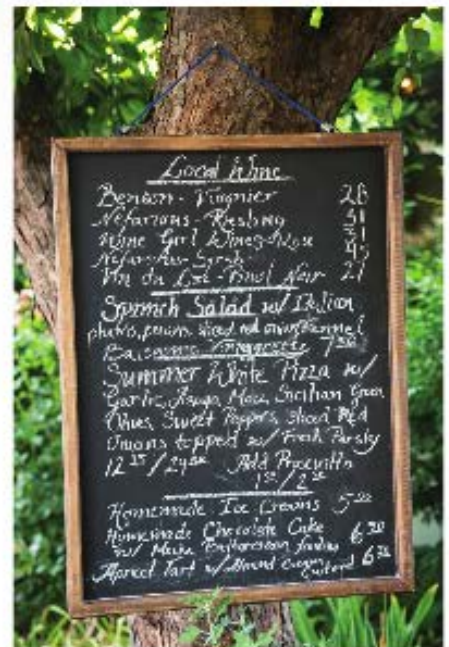 Local Wine
Benson - Viognier 28
Nefarious - Riesling 31
Wine Girl Wines 31
Nefarious Syrah 45
Vin du Lac - Pinot Noir 27
Spinach Salad w/ Italian
plums, pecans, sliced red onion, Fennel
Balsamic Vinaigrette 7.50
Summer White Pizza w/
Garlic, Asiago, Mozz, Sicilian Green
Olives, Sweet Peppers, Sliced Red
Onions topped w/ Fresh Parsley
/ Add Prosciutto
/
Homemade Ice Creams 5.00
Homemade Chocolate Cake
w/ Mocha 6
Apricot Tart w/ Almond Cream Custard 6